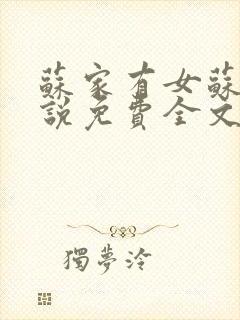 蘇家有女蘇
說免費全文
獨夢泠